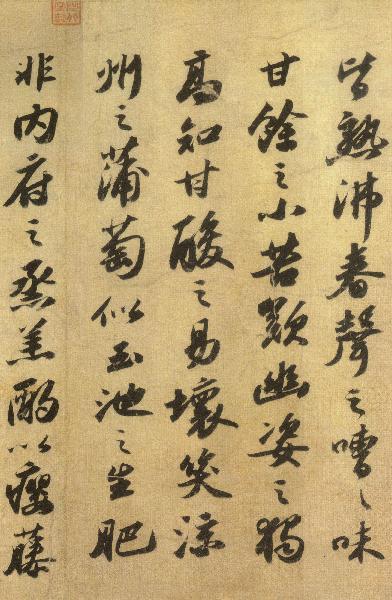 皆熟沸舂聲之嘈〻味
甘餘之小苦歎幽姿之獨
高知甘酸之易壞笑凉
州之蒲萄似玉池之生肥
非内府之烝羔酌以癭藤